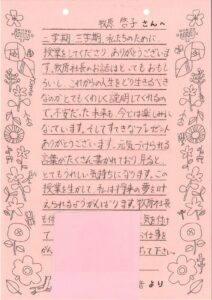 牧原 啓子 さんへ
二学期 三学期 私たちのために
授業をしてくださり ありがとうございま
す。牧原社長のお話はと、てもおもし
ろいし、これからの人生をどう生きるべき
なのかとてもくわしく説明してくれるの
で、不安だった未来も 今では楽しみに
なっています。そしてすてきなプレゼント
ありがとうございます。元気づけられる
言葉がたくさん書かれており 見ると、
とてもうれしい気持ちになります。この
授業を生かして、私は将来の夢を叶
えられるようがんばります。牧原社長
も
気を付け
仕事を
が
て下さい。
より